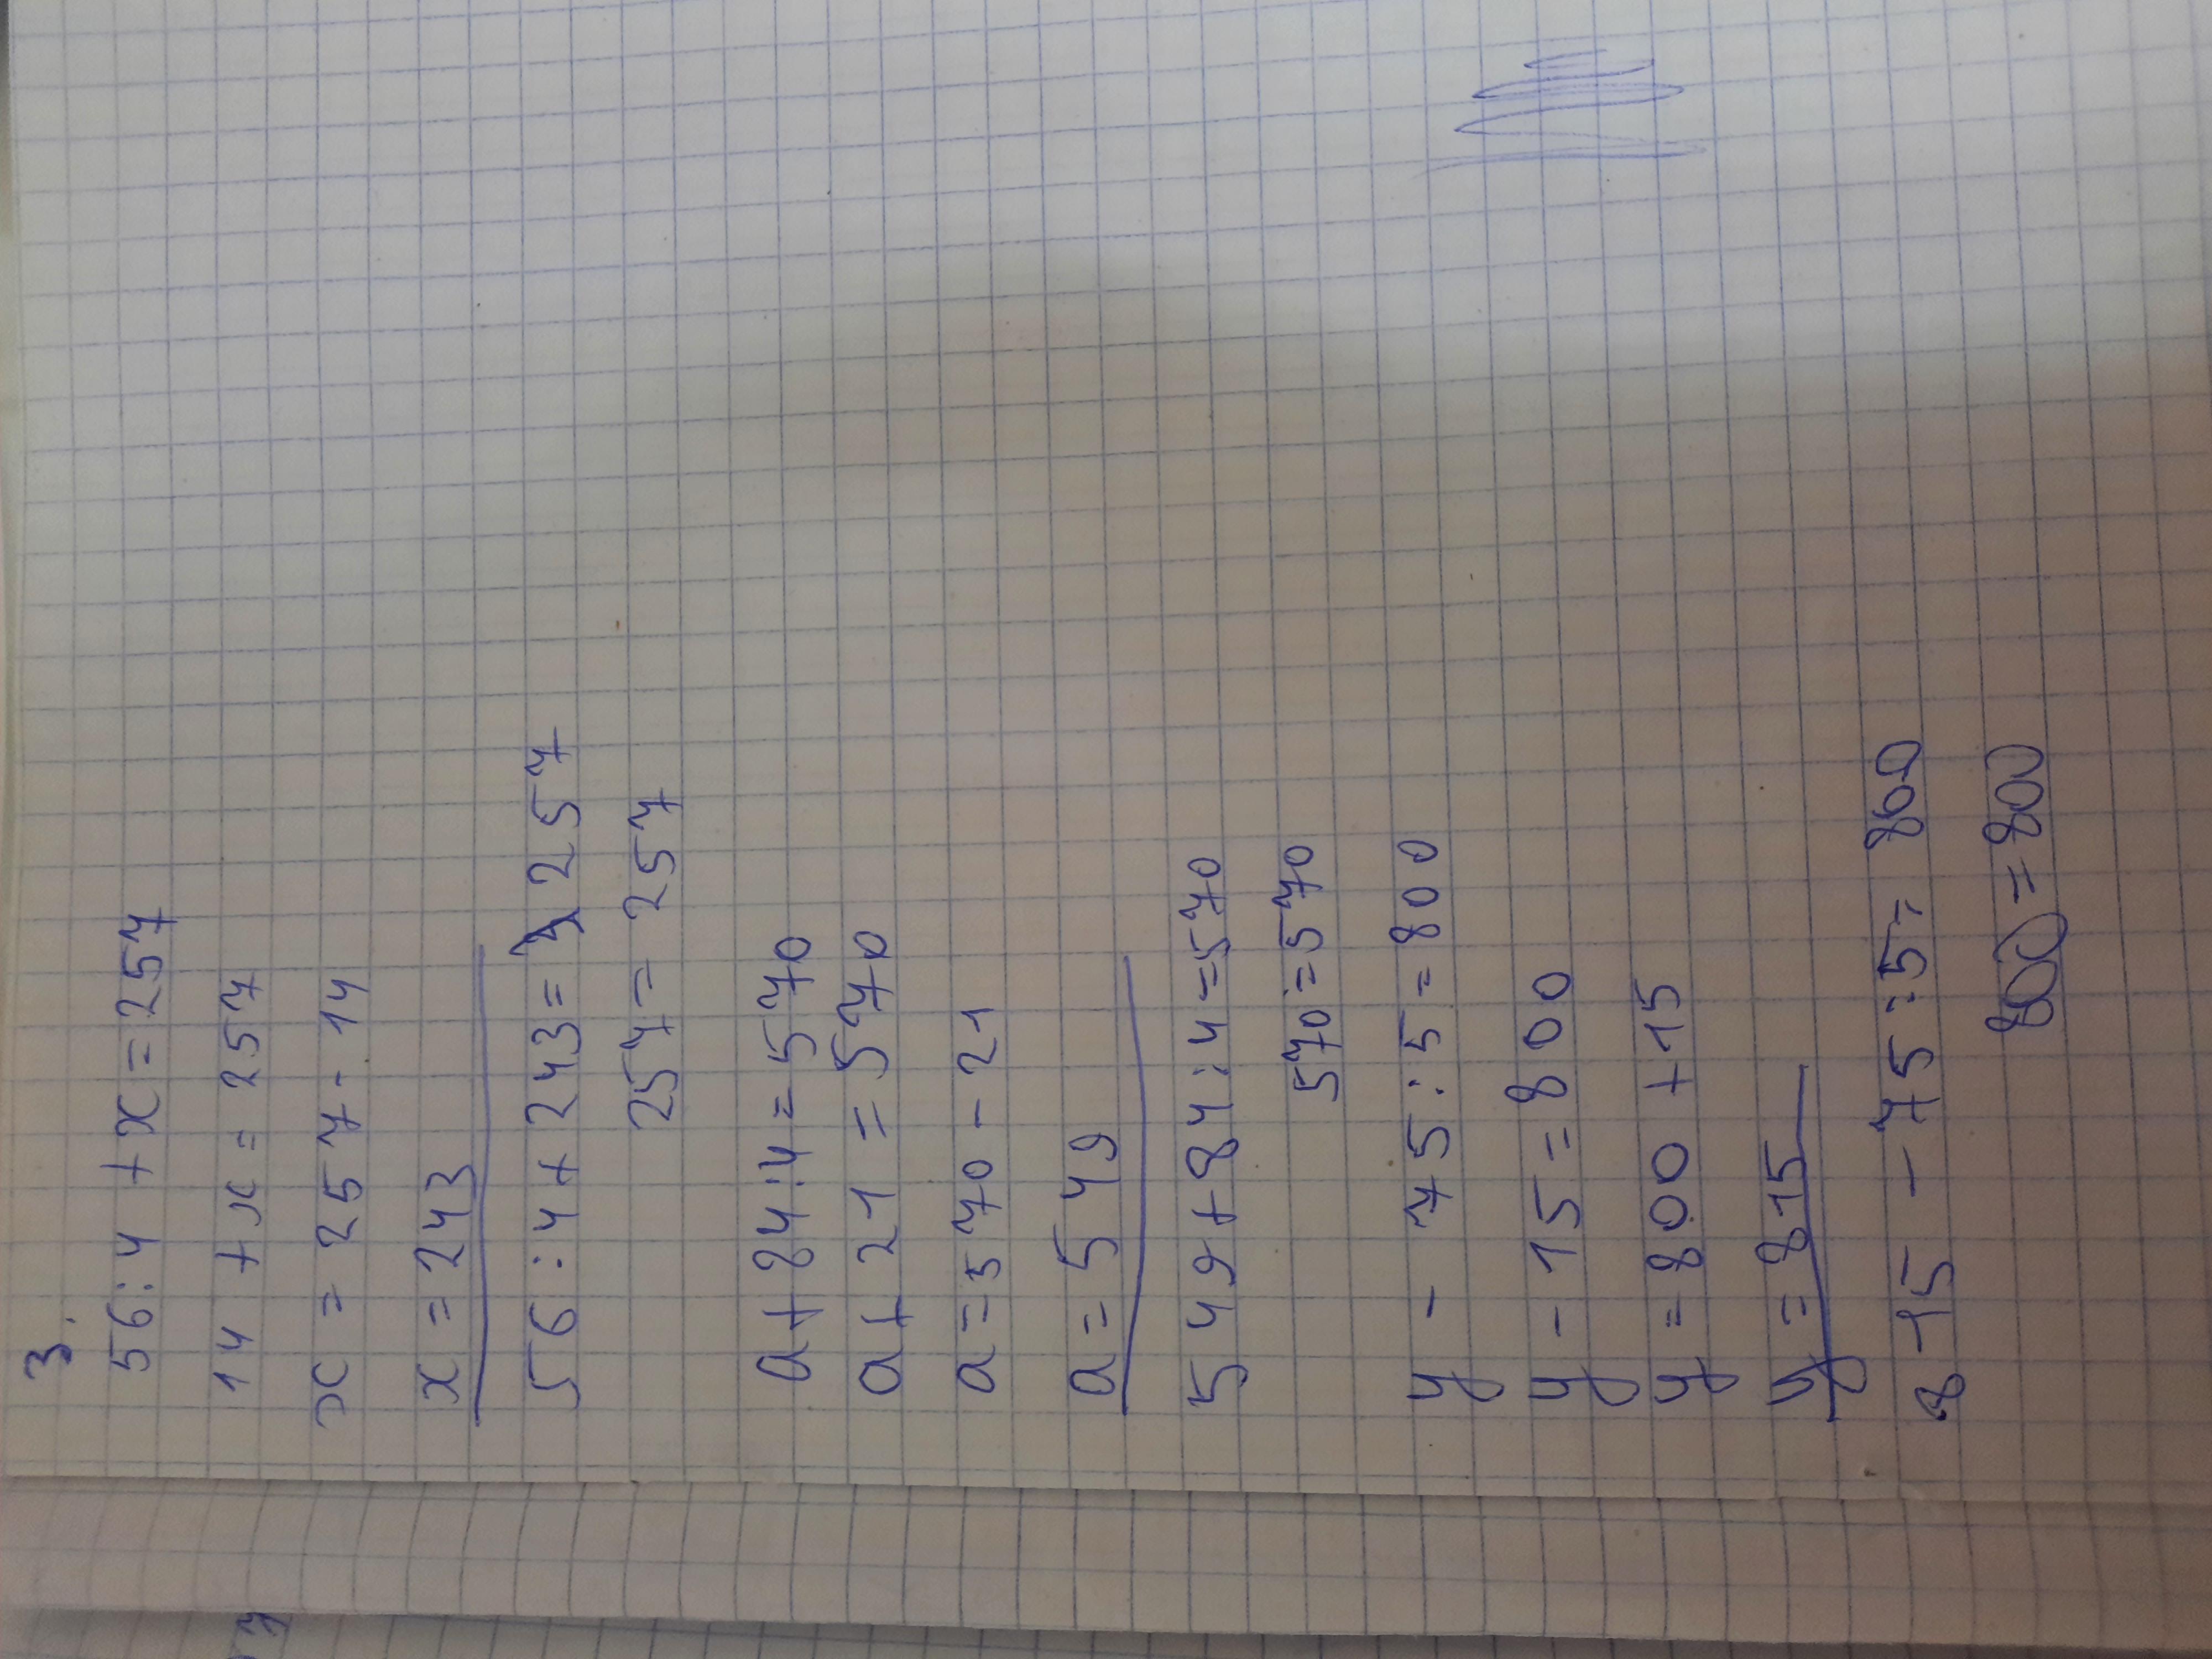 3.
56:4 + x = 257
14 + x = 257
x = 257 - 14
x = 243
56:4 + 243 = 257
257 = 257
a + 84:4 = 570
a + 21 = 570
a = 570 - 21
a = 549
549 + 84:4 = 570
570 = 570
y - 75:5 = 800
y - 15 = 800
y = 800 + 15
y = 815
815 - 75:5 = 800
800 = 800